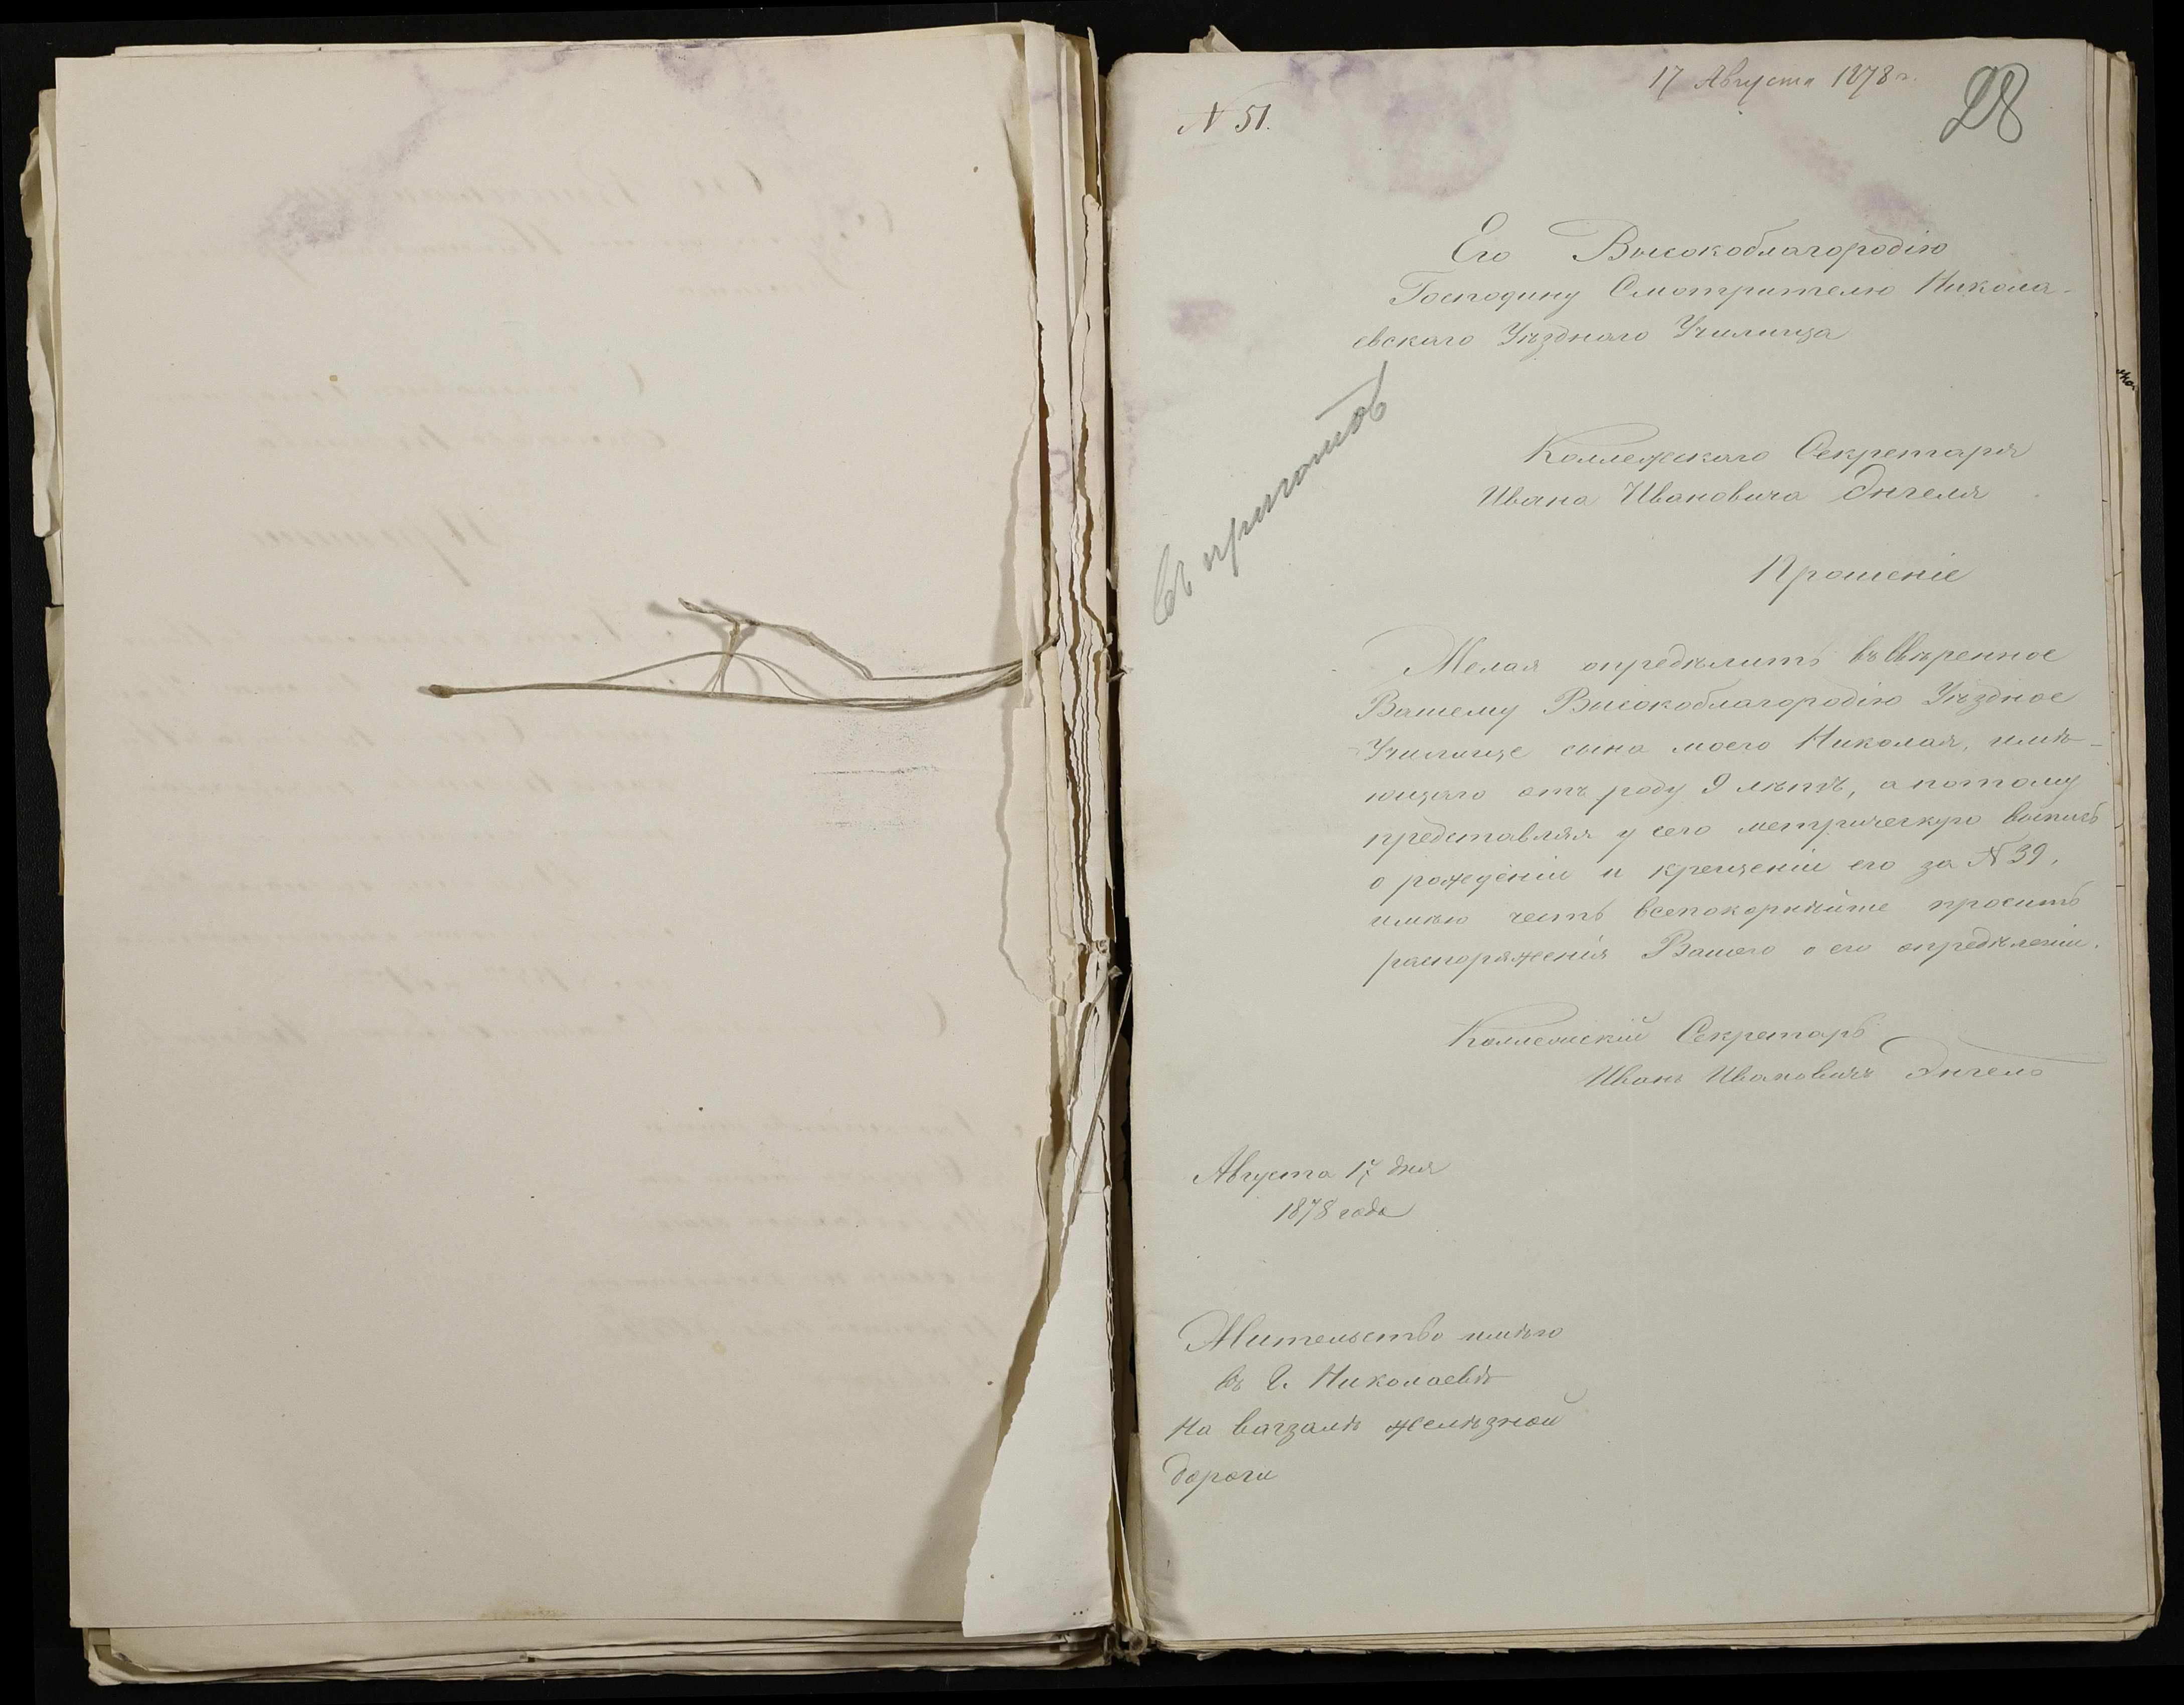 17 Августа 1878 г.
28
№ 51.
Его Высокоблагородію
Господину Смотрителю Никола-
евскаго Уѣзднаго Училища
Коллежскаго Секретаря
Ивана Ивановича Энгеля
Въ приготов
Прошеніе
Желая опредѣлить въ ввѣренное
Вашему Высокоблагородію Уѣздное
Училище сына моего Николая, имѣ-
ющаго отъ роду 9 лѣтъ, а потому
представляя у сего метрическую выпись
о рожденіи и крещеніи его за № 39,
имѣю честь всепокорнѣйше просить
распоряженія Вашего о его опредѣленіи.
Коллежскій Секретарь
Иванъ Ивановичъ Энгель
Августа 17 дня
1878 года
Жительство имѣю
въ г. Николаевѣ
на вагзалѣ желѣзной
дороги